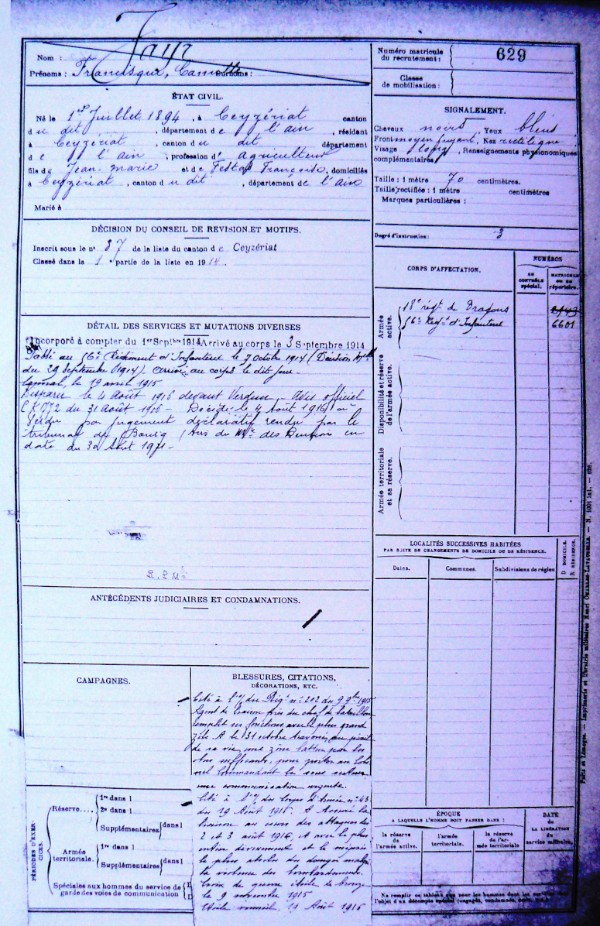 Jayr
Nom :
Prénoms : Francisque, Camille Surnoms :
ÉTAT CIVIL.
Né le 1er Juillet 1894, à Ceyzériat canton
du dit, département de l'ain, résidant
à Ceyzériat, canton du dit département
de l'ain, profession d' agriculteur
fils de Jean Marie et de Françoise, domiciliés
à Ceyzériat, canton du dit, département de l'ain
Marié à
DÉCISION DU CONSEIL DE REVISION ET MOTIFS.
Inscrit sous le n° 37 de la liste du canton de Ceyzériat
Classé dans la 1 partie de la liste en 1914
DÉTAIL DES SERVICES ET MUTATIONS DIVERSES
Incorporé à compter du 1er Septbre 1914 Arrivé au corps le 3 Septembre 1914
Passé au 56e Régiment d'Infanterie le 7 octobre 1914 (Décision
du 29 septembre 1914) au corps le dit jour
Caporal, le 19 avril 1915
Disparu le 4 Août 1916 devant Verdun, Avis officiel
du 31 Août 1916 - Décédé le 4 août 1916 à
Verdun par jugement déclaratif rendu par le
tribunal de Bourg (Avis du des Pensions en
date du 30 1921 -
ANTÉCÉDENTS JUDICIAIRES ET CONDAMNATIONS.
CAMPAGNES.
BLESSURES, CITATIONS,
DÉCORATIONS, ETC.
Cité à l'o/ du Rég. n° 212 du 9 9bre 1915
Agent de liaison près du chef de bataillon
remplit ses fonctions avec le plus grand
zèle. A le 31 octobre traversé, au péril
de sa vie, une zône battue par les
obus suffocants, pour porter au Colo
nel Commandant le sous secteur
une communication urgente.
Cité à l'o/ du Corps d'Armée n°
du 19 Août 1916. Assura la
liaison au cours des attaques des
2 et 3 août 1916, et avec le plus
entier dévouement et le mépris
le plus absolu du danger malgré
la violence des bombardements.
Croix de guerre étoile de bronze
le 9 novembre 1915
Etoile vermeil 19 Août 1916
PÉRIODES D'EXERCICES.
Réserve
1re dans l
2e dans l
Supplémentaires dans l
Armée territoriale.
1re dans l
Supplémentaires dans l
Spéciales aux hommes du service de
garde des voies de communication
Numéro matricule
du recrutement :
629
Classe
de mobilisation :
SIGNALEMENT.
Cheveux noirs, Yeux bleus
Front moyen fuyant, Nez rectiligne
Visage long, Renseignements physionomiques
complémentaires
Taille : 1 mètre 70 centimètres.
Taille rectifiée : 1 mètre centimètres
Marques particulières :
Degré d'instruction : 3
CORPS D'AFFECTATION.
NUMÉROS
AU CONTRÔLE spécial.
MATRICULE ou au répertoire.
Armée active.
18e régt de Dragons
56e Régt d'Infanterie
6601
Disponibilité et réserve de l'armée active.
Armée territoriale et sa réserve.
LOCALITÉS SUCCESSIVES HABITÉES
PAR SUITE DE CHANGEMENTS DE DOMICILE OU DE RÉSIDENCE.
Dates.
Communes.
Subdivisions de région
D. DOMICILE.
R. RÉSIDENCE.
ÉPOQUE
A LAQUELLE L'HOMME DOIT PASSER DANS :
la réserve de l'armée active.
l'armée territoriale.
la réserve de l'armée territoriale
DATE
de LA LIBÉRATION du service militaire.